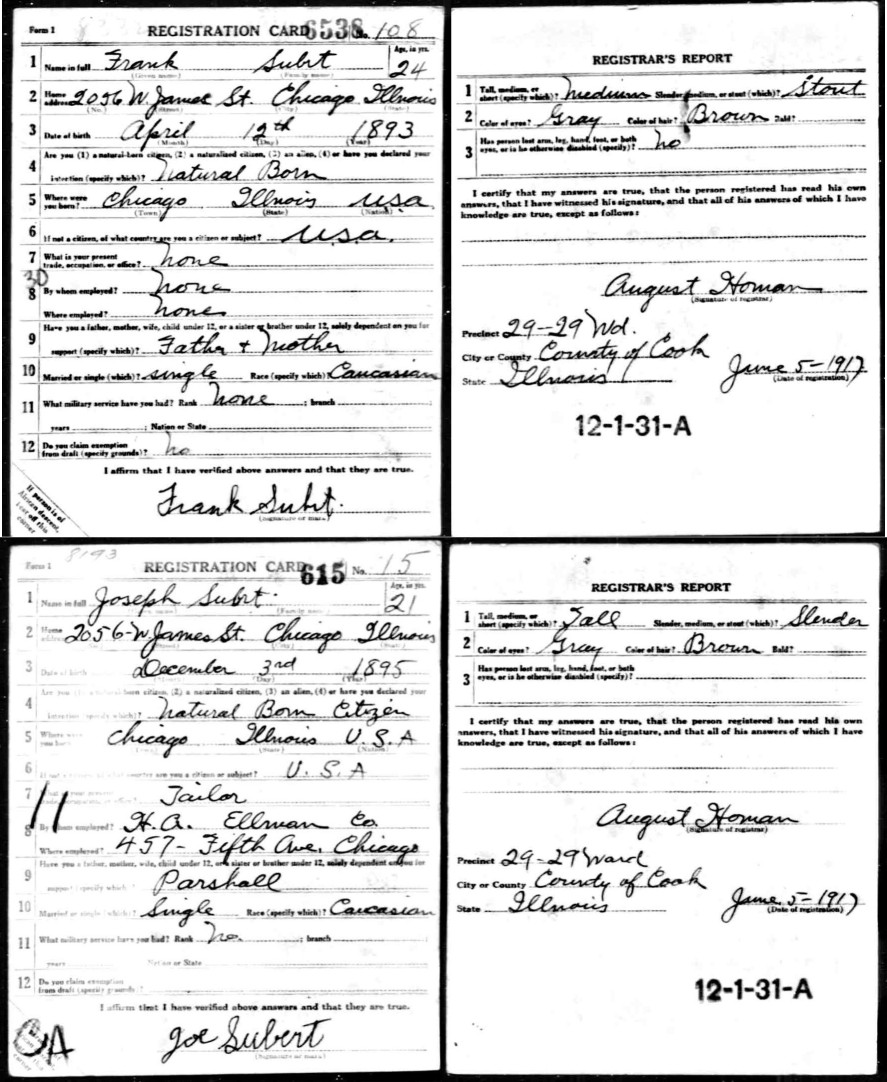 Form 1 REGISTRATION CARD 6538 No. 108
1 Name in full Frank Subrt Age, in yrs. 24
(Given name) (Family name)
2 Home address 2056 W. James St. Chicago Illinois
(No.) (Street) (City) (State)
3 Date of birth April 12th 1893
(Month) (Day) (Year)
4 Are you (1) a natural-born citizen, (2) a naturalized citizen, (3) an alien, (4) or have you declared your
intention (specify which)? Natural Born
5 Where were you born? Chicago Illinois USA
(Town) (State) (Nation)
6 If not a citizen, of what country are you a citizen or subject? USA.
7 What is your present trade, occupation, or office? none
30
8 By whom employed? none
Where employed? none
9 Have you a father, mother, wife, child under 12, or a sister or brother under 12, solely dependent on you for
support (specify which)? Father + Mother
10 Married or single (which)? single Race (specify which)? Caucasian
11 What military service have you had? Rank none ; branch
years ; Nation or State
12 Do you claim exemption from draft (specify grounds)? no
I affirm that I have verified above answers and that they are true.
Frank Subrt.
(Signature or mark)
If person is of African descent, cut off this corner
REGISTRAR'S REPORT
1 Tall, medium, or short (specify which)? Medium Slender, medium, or stout (which)? Stout
2 Color of eyes? Gray Color of hair? Brown Bald?
3 Has person lost arm, leg, hand, foot, or both eyes, or is he otherwise disabled (specify)? no
I certify that my answers are true, that the person registered has read his own
answers, that I have witnessed his signature, and that all of his answers of which I have
knowledge are true, except as follows:
August Homan
(Signature of registrar)
Precinct 29-29 Wd.
City or County County of Cook
State Illinois June 5-1917
(Date of registration)
12-1-31-A
8193
Form 1 REGISTRATION CARD 615 No. 15
1 Name in full Joseph Subrt. Age, in yrs. 21
(Family name)
2 Home address 2056-W James St. Chicago Illinois
(Street) (City) (State)
3 Date of birth December 3rd 1895
(Day) (Year)
4 Are you (1) a natural-born citizen, (2) a naturalized citizen, (3) an alien, (4) or have you declared your
intention (specify which)? Natural Born Citizen
5 Where were you born? Chicago Illinois U.S.A
(State) (Nation)
6 If not a citizen, of what country are you a citizen or subject? U.S.A
7 What is your present trade, occupation, or office? Tailor
11
8 By whom employed? H.A. Ellman Co.
Where employed? 457- Fifth Ave. Chicago
9 Have you a father, mother, wife, child under 12, or a sister or brother under 12, solely dependent on you for
support (specify which)? Parshall
10 Married or single (which)? Single Race (specify which)? Caucasian
11 What military service have you had? Rank no. ; branch
years Nation or State
12 Do you claim exemption from draft (specify grounds)?
I affirm that I have verified above answers and that they are true.
Joe Subert
(Signature or mark)
A
REGISTRAR'S REPORT
1 Tall, medium, or short (specify which)? Tall Slender, medium, or stout (which)? Slender
2 Color of eyes? Gray Color of hair? Brown Bald?
3 Has person lost arm, leg, hand, foot, or both eyes, or is he otherwise disabled (specify)?
I certify that my answers are true, that the person registered has read his own
answers, that I have witnessed his signature, and that all of his answers of which I have
knowledge are true, except as follows:
August Homan
(Signature of registrar)
Precinct 29-29 Ward
City or County County of Cook
State Illinois June 5-1917
(Date of registration)
12-1-31-A